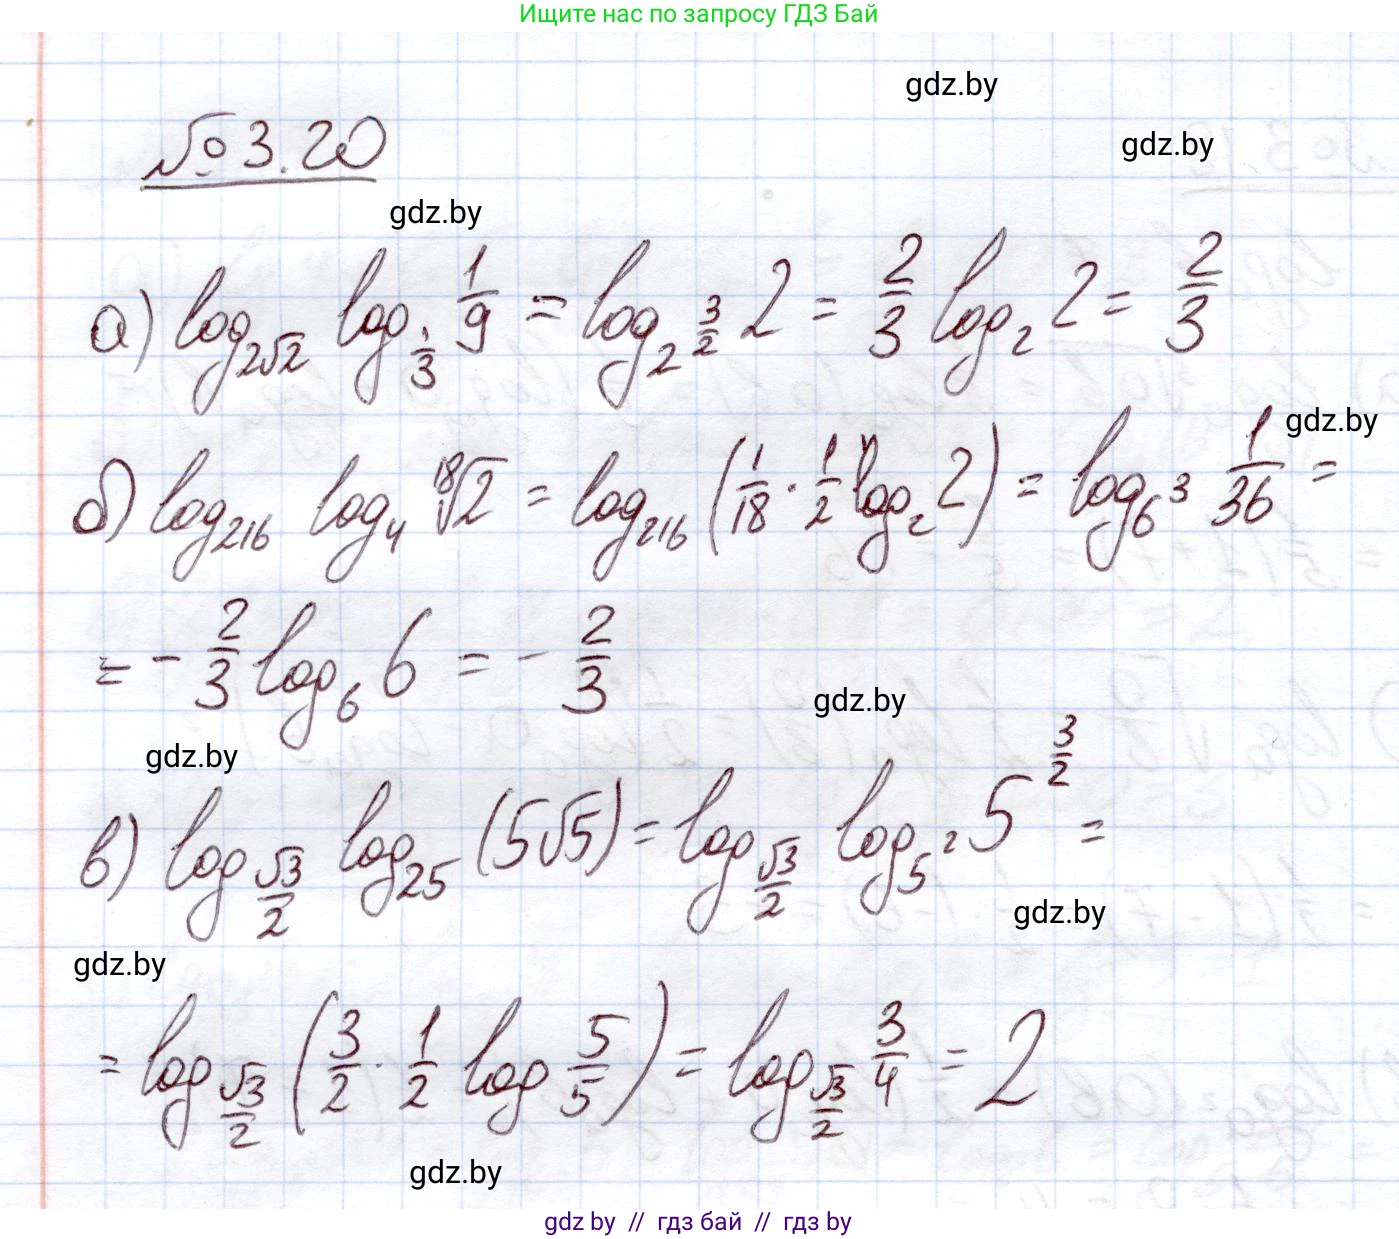 Ищите нас по запросу ГДЗ Бай
gdz.by
gdz.by
№3.20
gdz.by
а) log_{2√2} log_{1/3} 1/9 = log_{2^{3/2}} 2 = 2/3 log_2 2 = 2/3
gdz.by
б) log_{216} log_4 ¹⁸√2 = log_{216} (1/18 · 1/2 log_2 2) = log_{6^3} 1/36 =
= - 2/3 log_6 6 = - 2/3
gdz.by
gdz.by
в) log_{√3/2} log_{25} (5√5) = log_{√3/2} log_{5^2} 5^{3/2} =
gdz.by
gdz.by
= log_{√3/2} (3/2 · 1/2 log 5/5) = log_{√3/2} 3/4 = 2
gdz.by
gdz by // гдз бай // гдз by